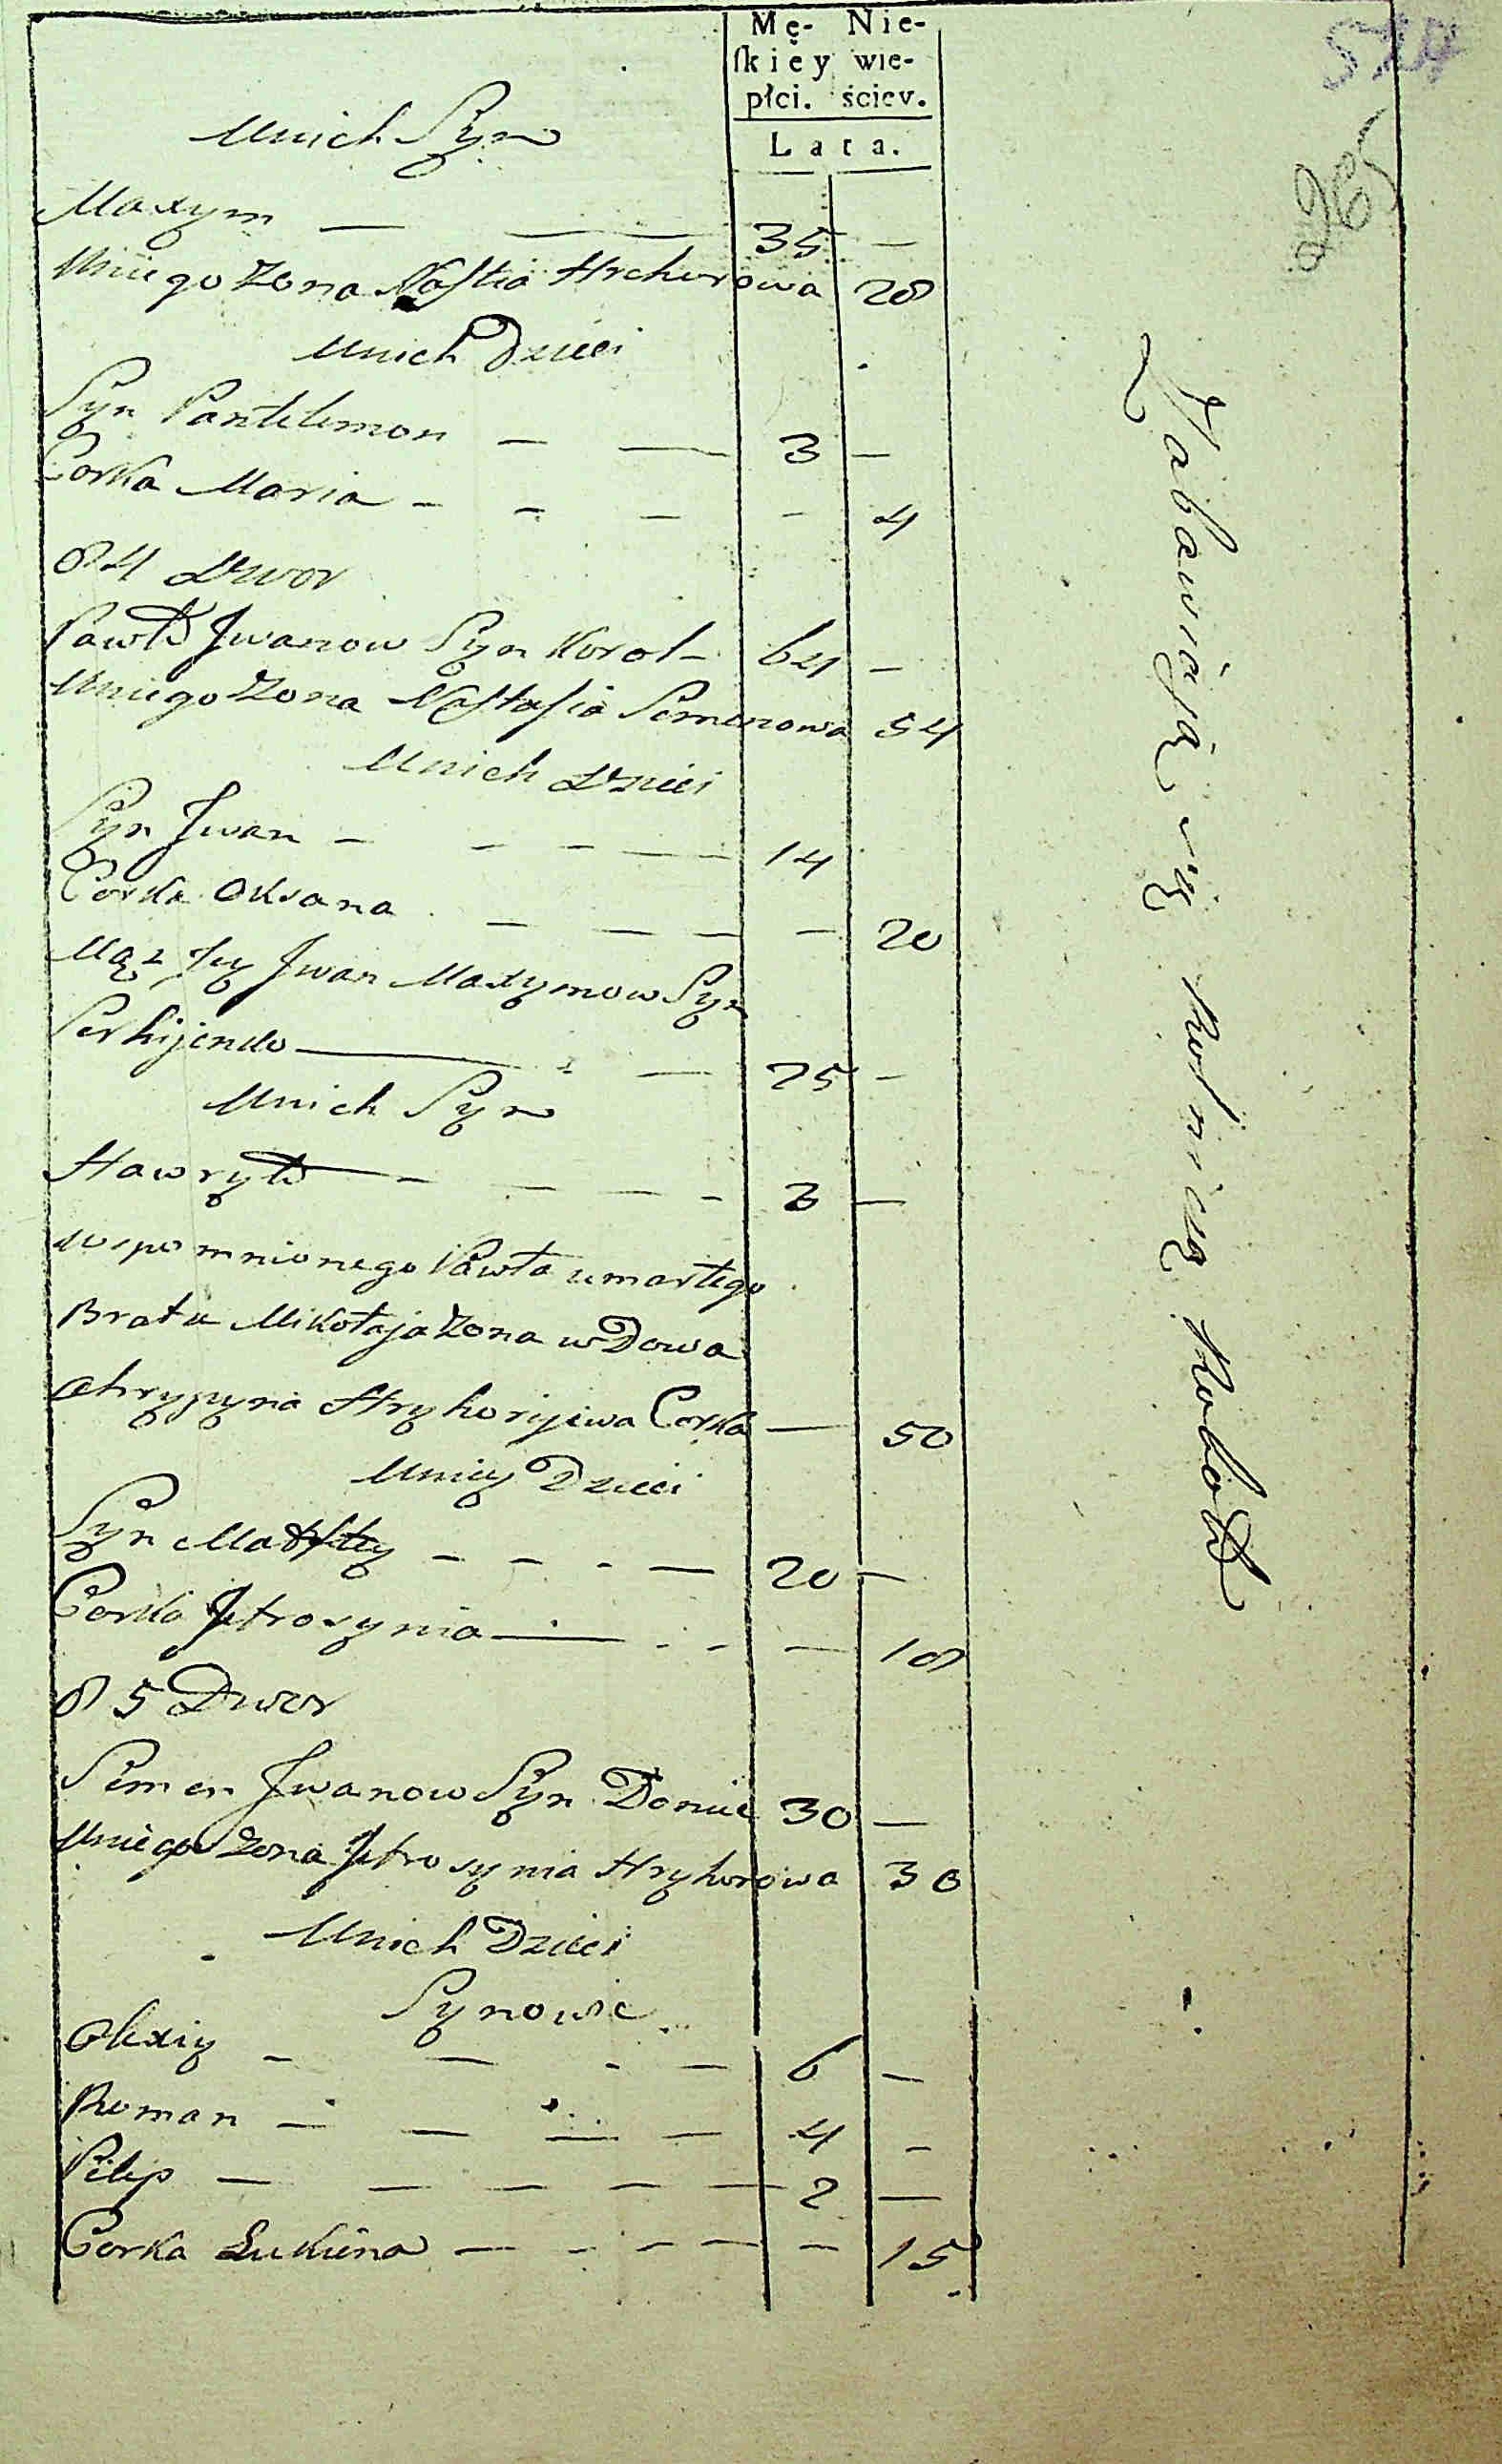 Mę- Nie-
skiey wie-
płci. ściey.
Lata.
Unich Syn
Maxym — — 35 —
Uniego Zona Nastia Hrehorowa 28
Unich Dzieci
Syn Pantelemon — — 3 —
Corka Maria - - — - 4
84 Dwor
Pawło Jwanow Syn Korol - 64 —
Uniego Zona Nastasia Semenowa 54
Unich Dzieci
Syn Jwan — - — — 14
Corka Oksana — — — — 20
Mąz Jey Jwan Maxymow Syn
Serhijenko — — 25 —
Unich Syn
Hawryło — — — - 3 —
wspomnionego Pawła umarłego
Brata Mikołaja Zona wDowa
Ahrypyna Hryhorijewa Corka — 50
Uniey Dzieci
Syn — - - — 20 —
Corka Jefrosynia — - - — 18
85 Dwor
Semen Jwanow Syn 30 —
Uniego Zona Jefrosynia Hryhorowa 30
Unich Dzieci
Synowie
Olexiy — — - — 6 —
Roman — — — — 4 —
Pilip — — — — — 2 —
Corka Łukiina — - — — — 15
Zabawiają się Rolniczą Robotą